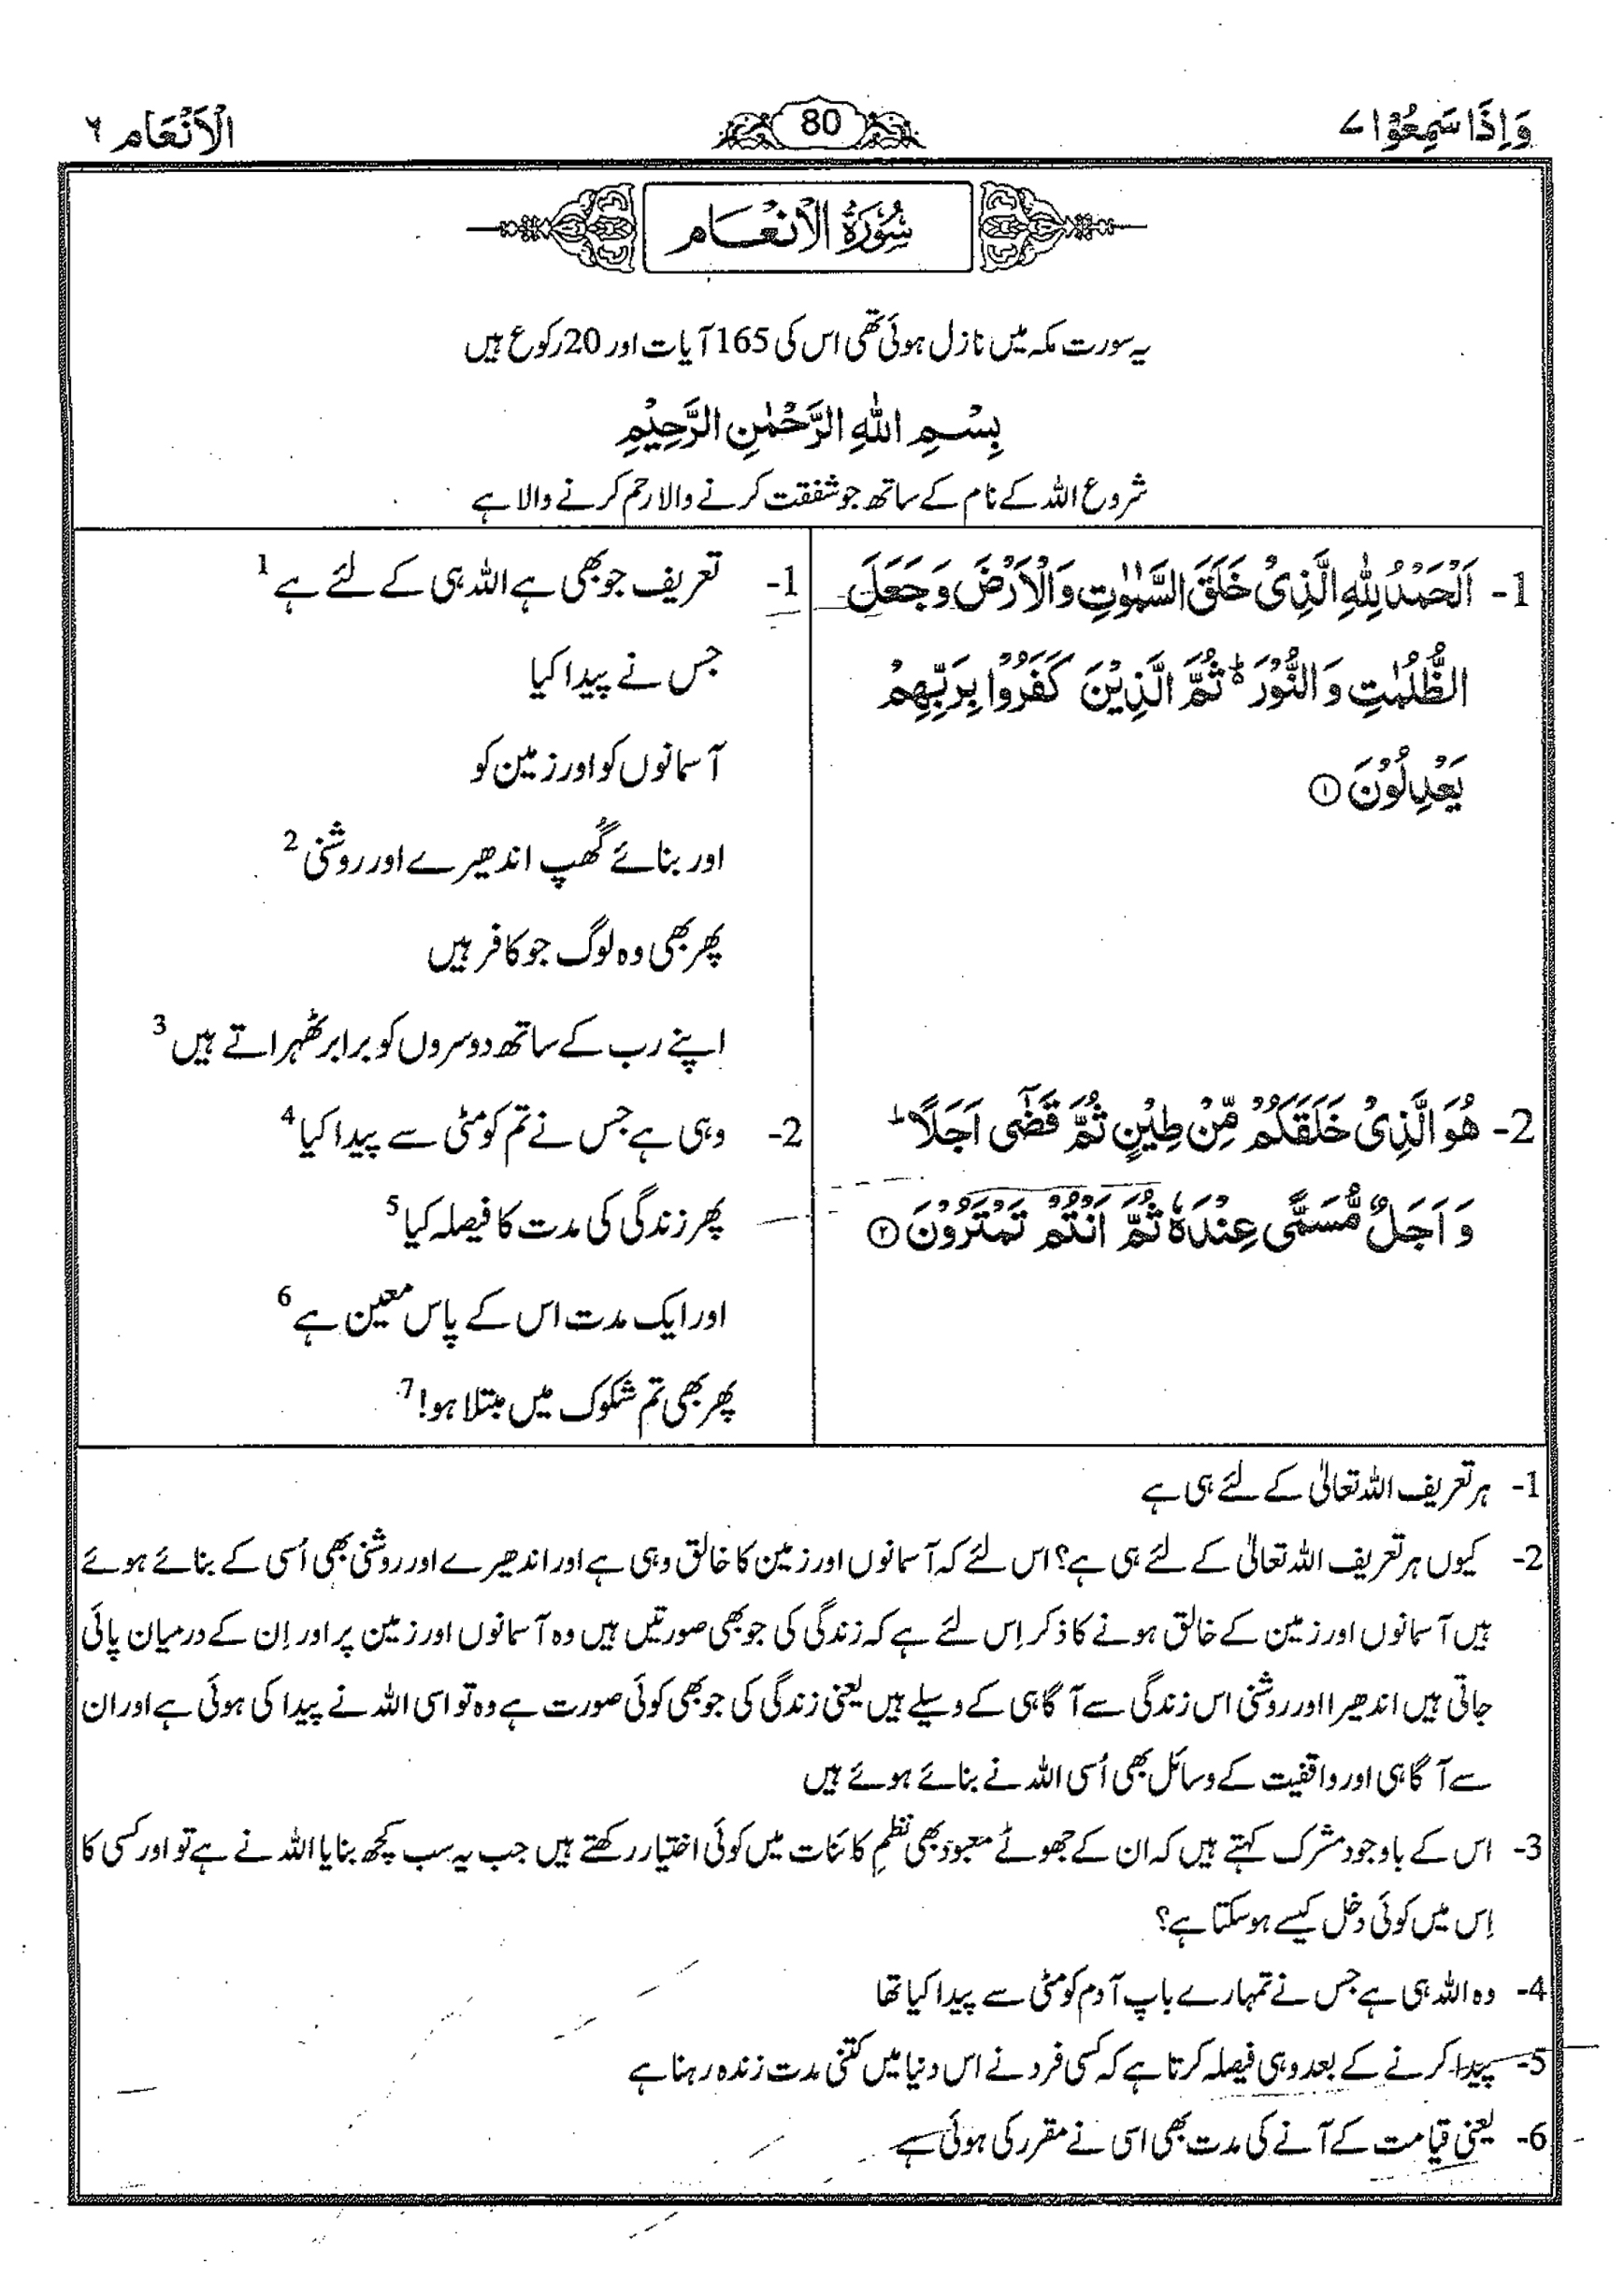 وَاِذَا سَمِعُوْا ۷
80
الْاَنْعَام ۶
سُوْرَةُ الْاَنْعَام
یہ سورت مکہ میں نازل ہوئی تھی اس کی 165 آیات اور 20 رکوع ہیں
بِسْمِ اللّٰهِ الرَّحْمٰنِ الرَّحِيْمِ
شروع اللہ کے نام کے ساتھ جو شفقت کرنے والا رحم کرنے والا ہے
1- اَلْحَمْدُ لِلّٰهِ الَّذِىْ خَلَقَ السَّمٰوٰتِ وَالْاَرْضَ وَجَعَلَ
الظُّلُمٰتِ وَالنُّوْرَ ؕ ثُمَّ الَّذِيْنَ كَفَرُوْا بِرَبِّهِمْ
يَعْدِلُوْنَ ①
2- هُوَ الَّذِىْ خَلَقَكُمْ مِّنْ طِيْنٍ ثُمَّ قَضٰۤى اَجَلًا ؕ
وَ اَجَلٌ مُّسَمًّى عِنْدَهٗ ثُمَّ اَنْتُمْ تَمْتَرُوْنَ ②
1- تعریف جو بھی ہے اللہ ہی کے لئے ہے 1
جس نے پیدا کیا
آسمانوں کو اور زمین کو
اور بنائے گُھپ اندھیرے اور روشنی 2
پھر بھی وہ لوگ جو کافر ہیں
اپنے رب کے ساتھ دوسروں کو برابر ٹھہراتے ہیں 3
2- وہی ہے جس نے تم کو مٹی سے پیدا کیا 4
پھر زندگی کی مدت کا فیصلہ کیا 5
اور ایک مدت اس کے پاس معین ہے 6
پھر بھی تم شکوک میں مبتلا ہو! 7
1- ہر تعریف اللہ تعالیٰ کے لئے ہی ہے
2- کیوں ہر تعریف اللہ تعالیٰ کے لئے ہی ہے؟ اس لئے کہ آسمانوں اور زمین کا خالق وہی ہے اور اندھیرے اور روشنی بھی اُسی کے بنائے ہوئے
ہیں آسمانوں اور زمین کے خالق ہونے کا ذکر اِس لئے ہے کہ زندگی کی جو بھی صورتیں ہیں وہ آسمانوں اور زمین پر اور اِن کے درمیان پائی
جاتی ہیں اندھیرا اور روشنی اس زندگی سے آگاہی کے وسیلے ہیں یعنی زندگی کی جو بھی کوئی صورت ہے وہ تو اسی اللہ نے پیدا کی ہوئی ہے اور ان
سے آگاہی اور واقفیت کے وسائل بھی اُسی اللہ نے بنائے ہوئے ہیں
3- اس کے باوجود مشرک کہتے ہیں کہ ان کے جھوٹے معبود بھی نظمِ کائنات میں کوئی اختیار رکھتے ہیں جب یہ سب کچھ بنایا اللہ نے ہے تو اور کسی کا
اِس میں کوئی دخل کیسے ہو سکتا ہے؟
4- وہ اللہ ہی ہے جس نے تمہارے باپ آدم کو مٹی سے پیدا کیا تھا
5- پیدا کرنے کے بعد وہی فیصلہ کرتا ہے کہ کسی فرد نے اس دنیا میں کتنی مدت زندہ رہنا ہے
6- یعنی قیامت کے آنے کی مدت بھی اسی نے مقرر کی ہوئی ہے